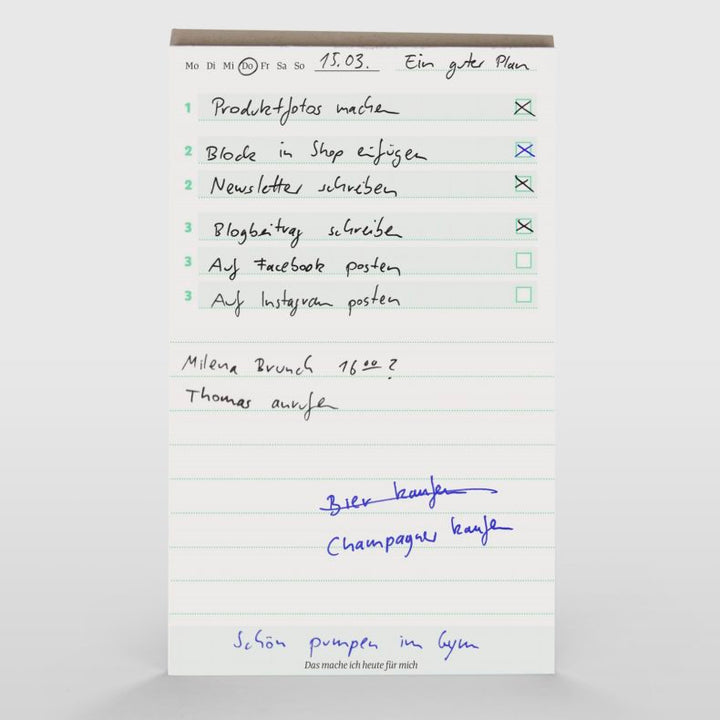 Mo Di Mi Do Fr Sa So 15.03. Ein guter Plan
1 Produktfotos machen
2 Block in Shop einfügen
2 Newsletter schreiben
3 Blogbeitrag schreiben
3 Auf Facebook posten
3 Auf Instagram posten
Milena Brunch 16 00 ?
Thomas anrufen
Bier kaufen
Champagner kaufen
Schön pumpen im Gym
Das mache ich heute für mich